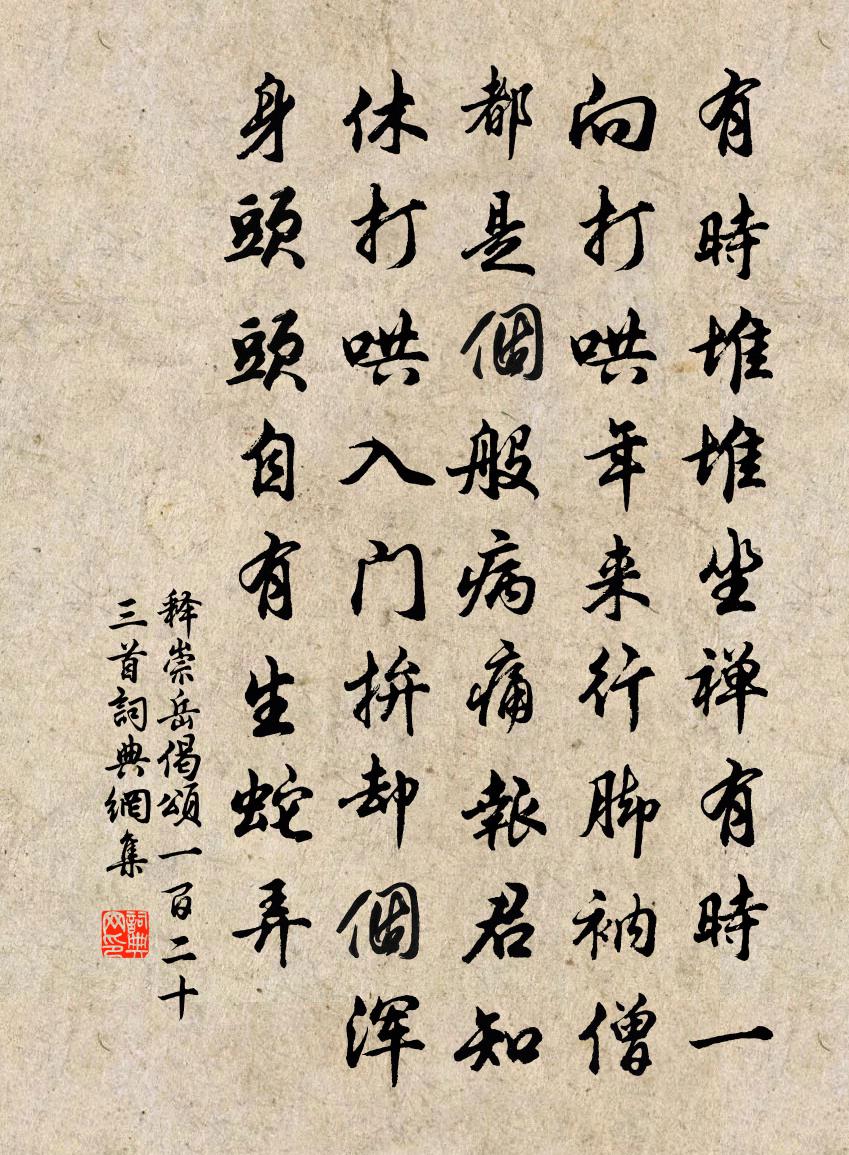 有時堆堆坐禅有時一
向打哄年来行脚衲僧
都是個般病痛報君知
休打哄入门拚却個浑
身頭頭自有生蛇弄
释崇岳偈頌一百二十
三首詞典網集
詞典网印